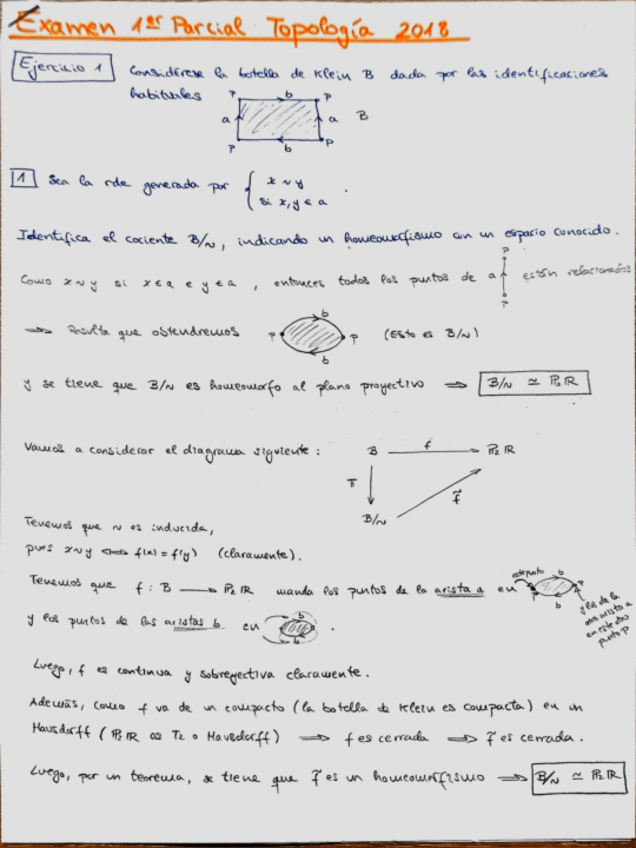 Examen 1er Parcial Topología 2018
Ejercicio 1 Considérese la botella de Klein B dada por las identificaciones
habituales
P b P
a a B
P b P
1 Sea la rde generada por { x ~ y
si x, y ∈ a .
Identifica el cociente B/~, indicando un homeomorfismo con un espacio conocido.
P
Como x ~ y si x ∈ a e y ∈ a, entonces todos los puntos de a están relacionados
P
b
⟹ Resulta que obtendremos P P (Esto es B/~)
b
y se tiene que B/~ es homeomorfo al plano proyectivo ⟹ B/~ ≃ P₂ℝ
Vamos a considerar el diagrama siguiente:
B f P₂ℝ
π f̃
B/~
Tenemos que ~ es inducida,
pues x~y ⟺ f(x) = f(y) (claramente).
Tenemos que f : B ⟶ P₂ℝ manda los puntos de la arista a en
este punto b P
P b
y los de la
otra arista a
en este otro
punto P
y los puntos de las aristas b en .
Luego, f es continua y sobreyectiva claramente.
Además, como f va de un compacto (la botella de Klein es compacta) en un
Hausdorff (P₂ℝ es T₂ o Hausdorff) ⟹ f es cerrada ⟹ f̃ es cerrada.
Luego, por un teorema, se tiene que f̃ es un homeomorfismo ⟹ B/~ ≃ P₂ℝ